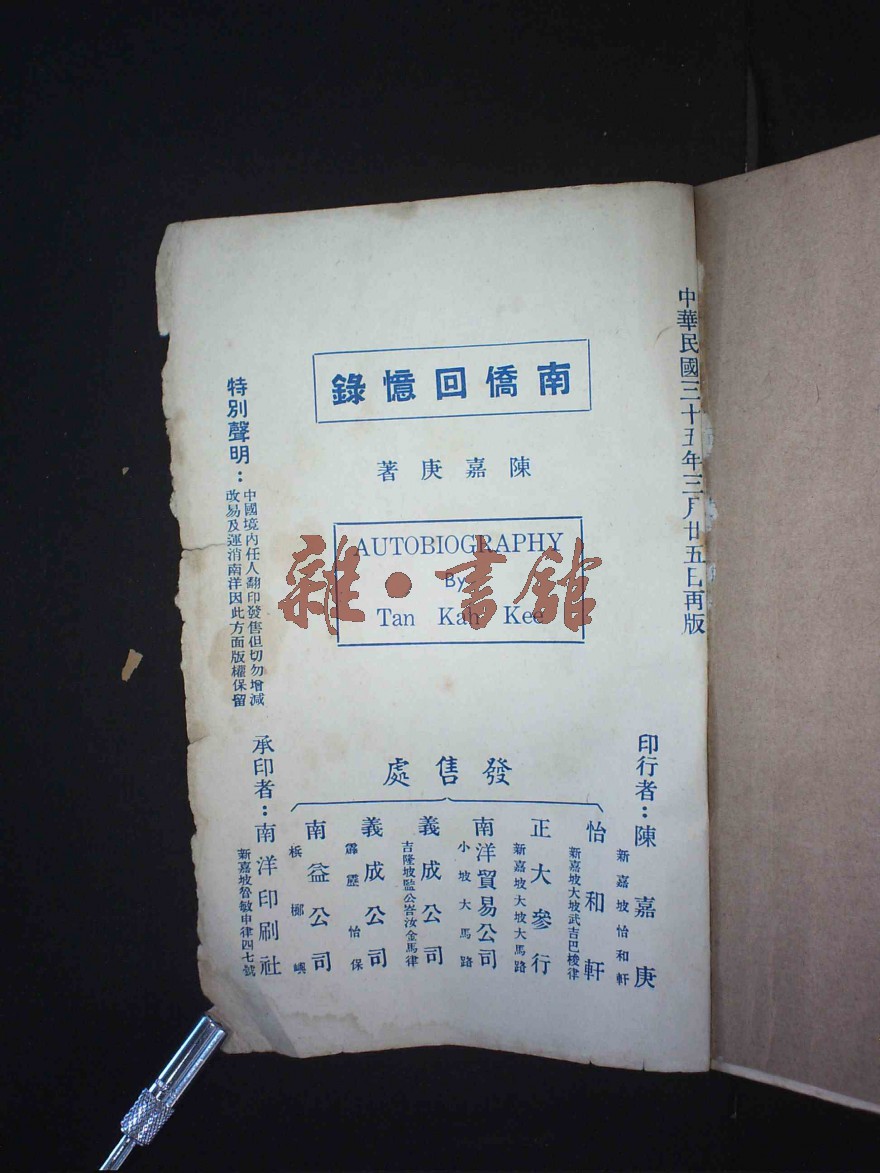 中華民國三十五年三月廿五日再版
南僑回憶錄
陳嘉庚著
AUTOBIOGRAPHY
By
Tan Kah Kee
雜·書館
特別聲明：
中國境內任人翻印發售但切勿增減
改易及運消南洋因此方面版權保留
印行者：陳嘉庚
新嘉坡怡和軒
發售處
怡和軒
新嘉坡大坡武吉巴梭律
正大參行
新嘉坡大坡大馬路
南洋貿易公司
小坡大馬路
義成公司
吉隆坡監公峇汝金馬律
義成公司
霹靂怡保
南益公司
檳榔嶼
承印者：南洋印刷社
新嘉坡羅敏申律四七號